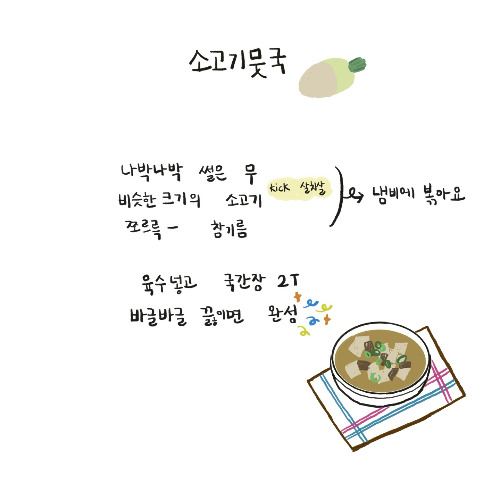 소고기뭇국
나박나박 썰은 무
비슷한 크기의 소고기 kick 살치살
쪼르륵 - 참기름
냄비에 볶아요
육수넣고 국간장 2T
바글바글 끓이면 완성